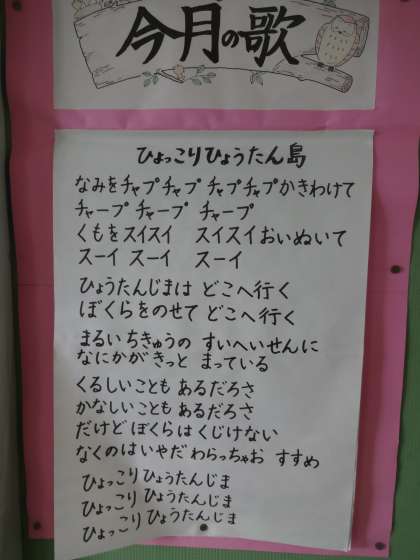 今月の歌
ひょっこりひょうたん島
なみをチャプチャプ チャプチャプかきわけて
チャープ チャープ チャープ
くもをスイスイ スイスイおいぬいて
スーイ スーイ スーイ
ひょうたんじまは どこへ行く
ぼくらをのせて どこへ行く
まるい ちきゅうの すいへいせんに
なにかが きっと まっている
くるしいことも あるだろさ
かなしいことも あるだろさ
だけど ぼくらは くじけない
なくのはいやだ わらっちゃお すすめ
ひょっこり ひょうたんじま
ひょっこり ひょうたんじま
ひょっこり ひょうたんじま